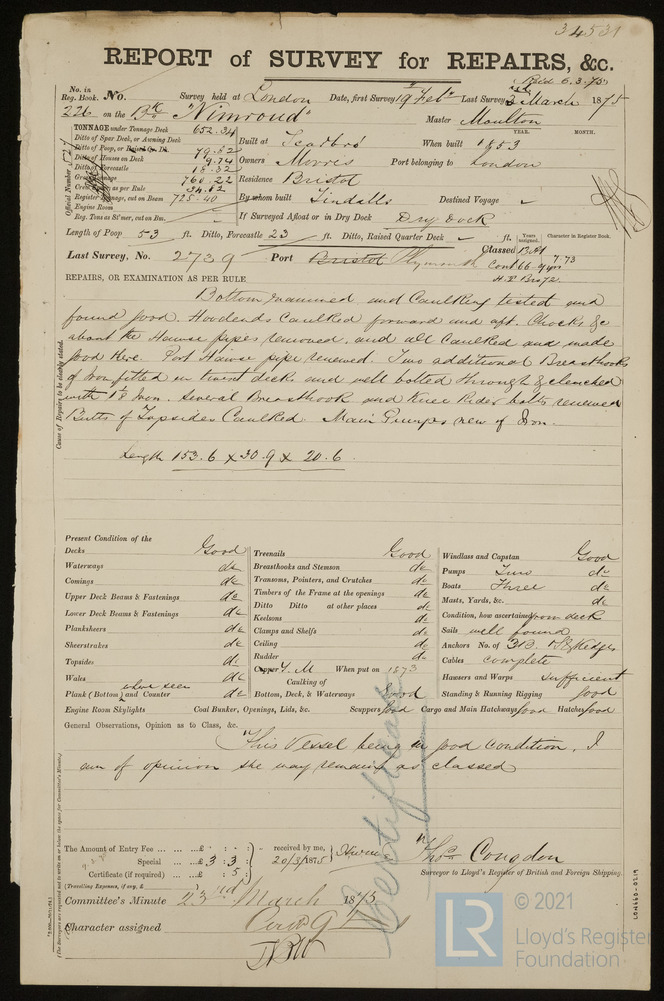 34531
REPORT of SURVEY for REPAIRS, &c.
Recd 6.3.75
No. in Reg. Book. No. Survey held at London Date, first Survey 19 Feby Last Survey 2nd March 1875
226 on the Bk "Nimroud" Master Moulton
TONNAGE under Tonnage Deck 652.34
YEAR. MONTH.
Ditto of Spar Deck, or Awning Deck
Built at Scarbro When built 1853
Ditto of Poop, or Raised Qr. Dk. 79.82
Ditto of Houses on Deck 9.74
Owners Morris Port belonging to London
Ditto of Forecastle 18.32
Gross Tonnage 760.22
Residence Bristol
Crew Space as per Rule 34.82
Register Tonnage, cut on Beam 725.40
By whom built Tindalls Destined Voyage
Engine Room
Reg. Tons as St'mer, cut on Bm.
If Surveyed Afloat or in Dry Dock Dry Dock
Official Number
Length of Poop 53 ft. Ditto, Forecastle 23 ft. Ditto, Raised Quarter Deck ft.
Years assigned. Character in Register Book.
Last Survey, No. 2739 Port Bristol Plymouth
Classed 13 A1 7.73
Cont 66-9 yrs
REPAIRS, OR EXAMINATION AS PER RULE
Bottom examined and Caulking tested and
found good. Hoodends Caulked forward and aft. Chocks &c
about the Hawse pipes removed, and all Caulked and made
good there. Port Hawse pipe renewed. Two additional Breasthooks
of Iron fitted in twixt decks and well bolted through & clenched
with 1⅛ Iron. Several Breasthook and Knee Rider bolts renewed
Butts of Topsides Caulked. Main Pumps new of Iron.
Length 153.6 x 30.9 x 20.6
Cause of Repairs to be clearly stated.
Present Condition of the
Decks Good
Waterways do
Comings do
Upper Deck Beams & Fastenings do
Lower Deck Beams & Fastenings do
Planksheers do
Sheerstrakes do
Topsides do
Wales do
where seen
Plank (Bottom) and Counter do
Engine Room Skylights
Treenails Good
Breasthooks and Stemson do
Transoms, Pointers, and Crutches do
Timbers of the Frame at the openings do
Ditto Ditto at other places do
Keelsons do
Clamps and Shelfs do
Ceiling do
Rudder do
Copper Y.M When put on 1873
Caulking of
Bottom, Deck, & Waterways Good
Coal Bunker, Openings, Lids, &c. Scuppers good
Windlass and Capstan Good
Pumps Two do
Boats Three do
Masts, Yards, &c. do
Condition, how ascertained from deck
Sails well found
Anchors No. of 3B. 1S & Kedges
Cables complete
Hawsers and Warps sufficient
Standing & Running Rigging good
Cargo and Main Hatchways good Hatches good
General Observations, Opinion as to Class, &c.
"This Vessel being in good condition, I
am of opinion she may remain as classed
Certificate
The Amount of Entry Fee £ : : received by me,
Special £ 3 : 3 : 20/3/1875
Certificate (if required) £ : 5 :
(Travelling Expenses, if any, £
Thos Congdon
Surveyor to Lloyd's Register of British and Foreign Shipping.
Committee's Minute 23rd March 1875
Character assigned
(The Surveyors are requested not to write on or below the space for Committee's Minute.)
LON660-0219
LR
© 2021
Lloyd's Register
Foundation